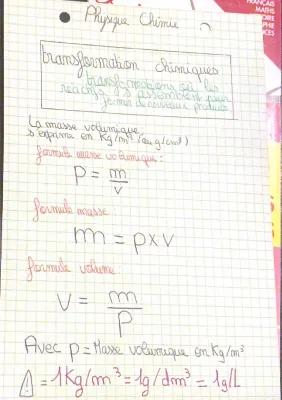 Physique Chimie
transformation chimiques
transformations où les
réactifs s'assemblent pour
former de nouveaux produits
La masse volumique
s'exprime en Kg/m³ (ou g/cm³)
formule masse volumique :
P = m/v
formule masse
m = p x v
formule volume :
V = m/P
Avec p = Masse volumique en Kg/m³
⚠ = 1 Kg/m³ = 1g/dm³ = 1g/L
FRANÇAIS
MATHS